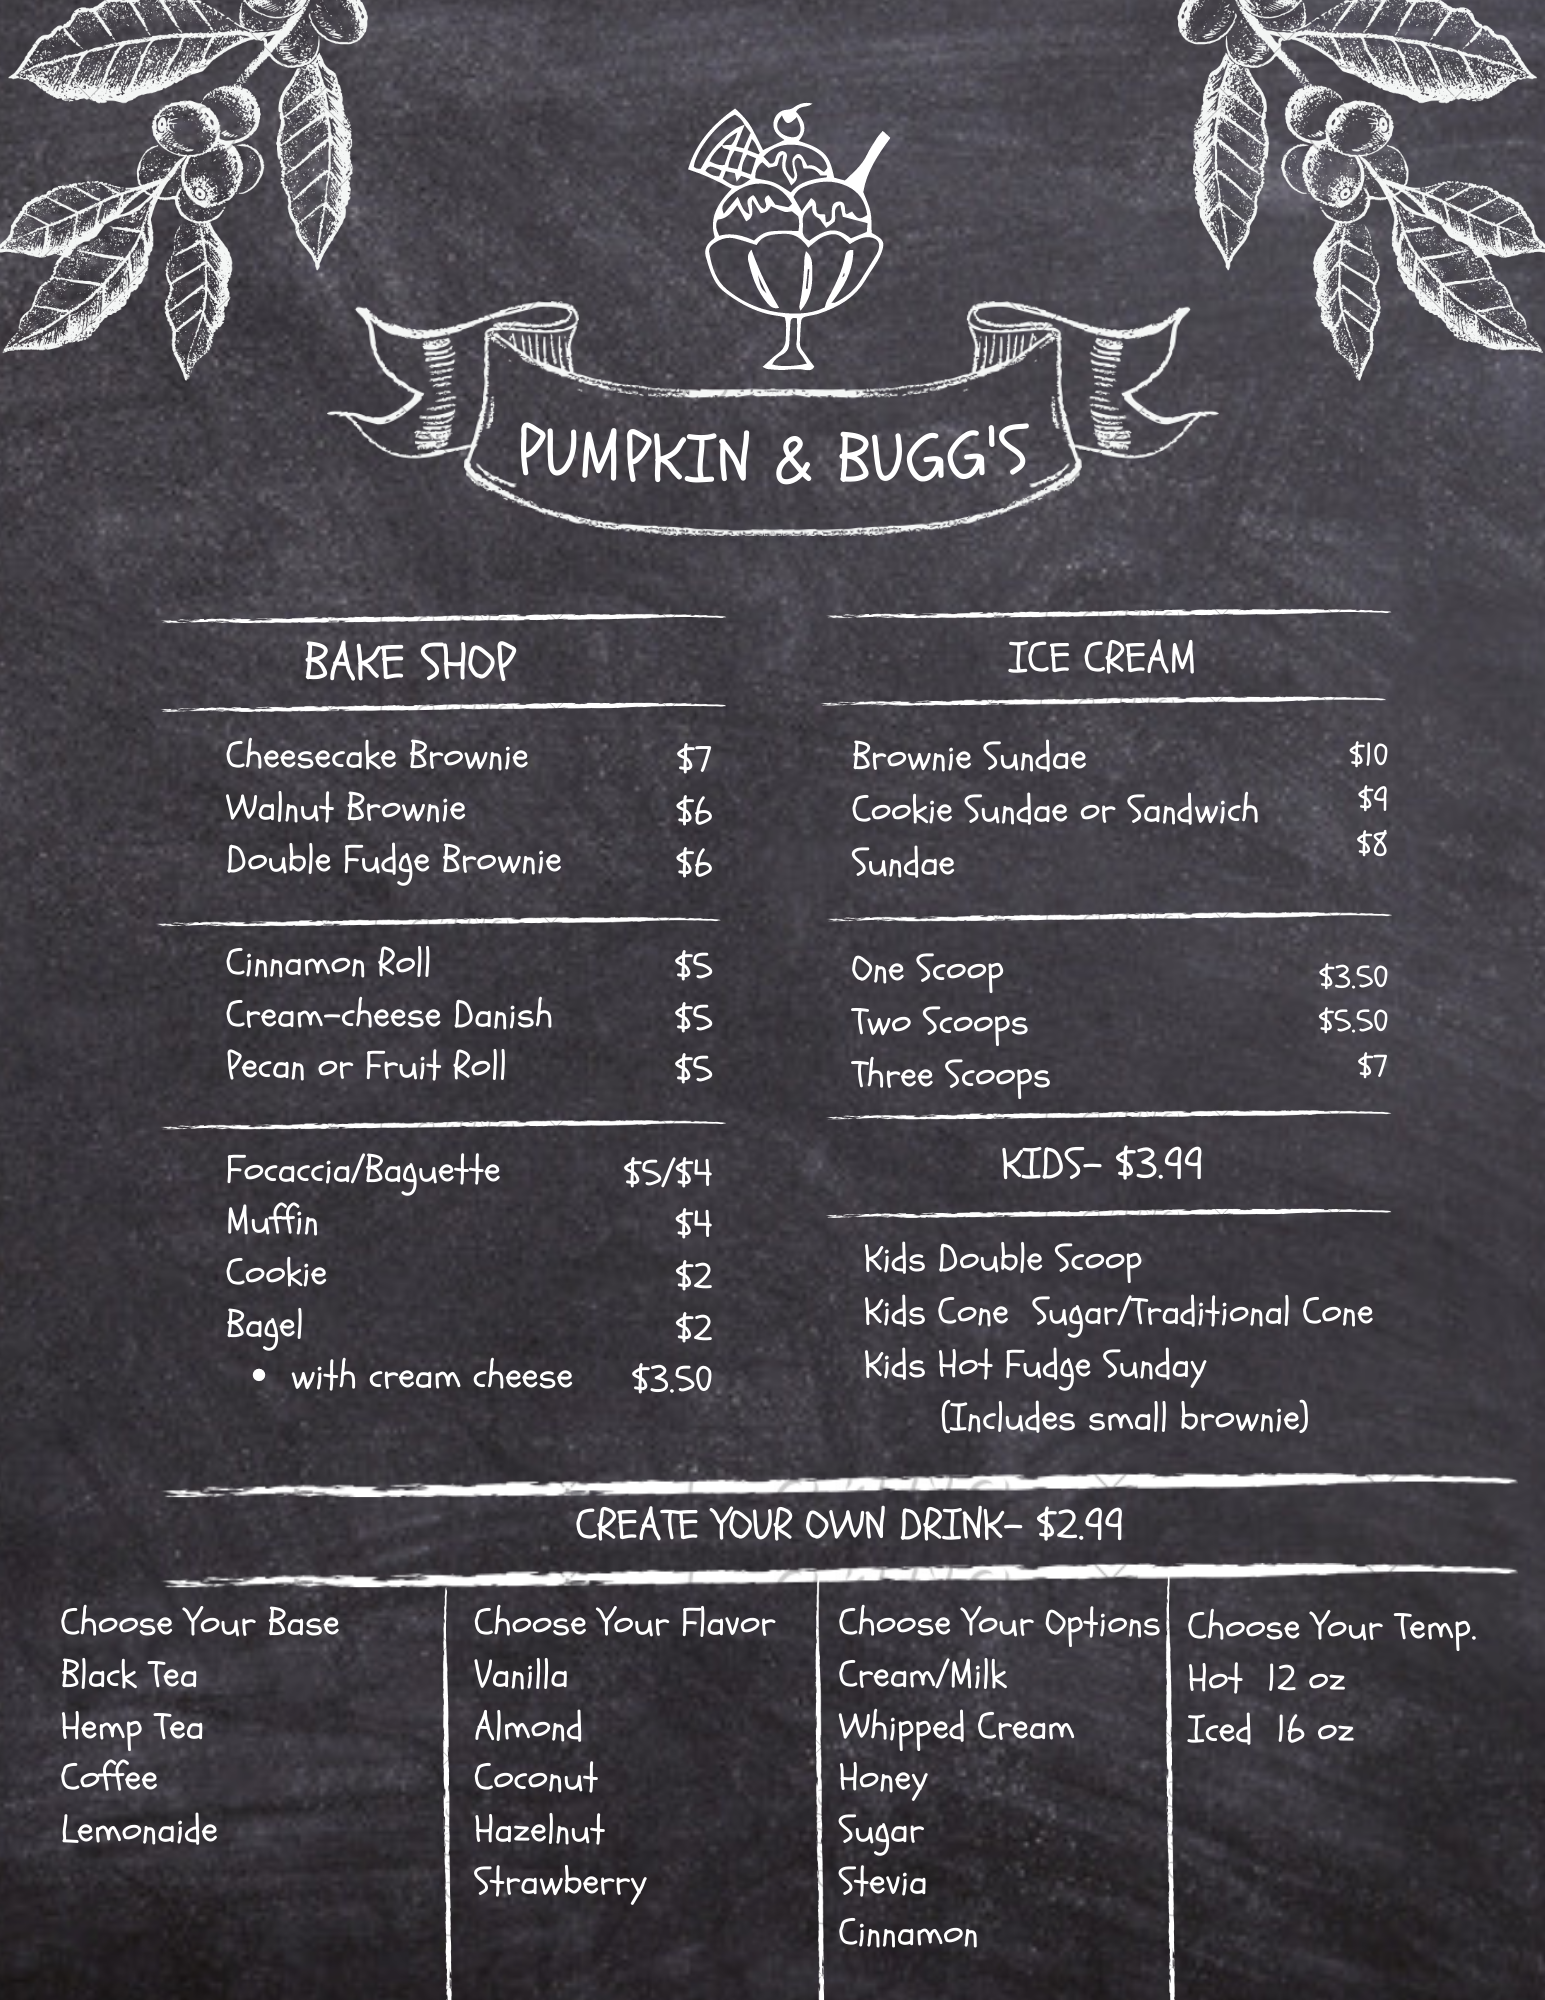 PUMPKIN & BUGG'S
BAKE SHOP
Cheesecake Brownie $7
Walnut Brownie $6
Double Fudge Brownie $6
Cinnamon Roll $5
Cream-cheese Danish $5
Pecan or Fruit Roll $5
Focaccia/Baguette $5/$4
Muffin $4
Cookie $2
Bagel $2
• with cream cheese $3.50
ICE CREAM
Brownie Sundae $10
Cookie Sundae or Sandwich $9
Sundae $8
One Scoop $3.50
Two Scoops $5.50
Three Scoops $7
KIDS- $3.99
Kids Double Scoop
Kids Cone Sugar/Traditional Cone
Kids Hot Fudge Sunday
(Includes small brownie)
CREATE YOUR OWN DRINK- $2.99
Choose Your Base
Black Tea
Hemp Tea
Coffee
Lemonaide
Choose Your Flavor
Vanilla
Almond
Coconut
Hazelnut
Strawberry
Choose Your Options
Cream/Milk
Whipped Cream
Honey
Sugar
Stevia
Cinnamon
Choose Your Temp.
Hot 12 oz
Iced 16 oz